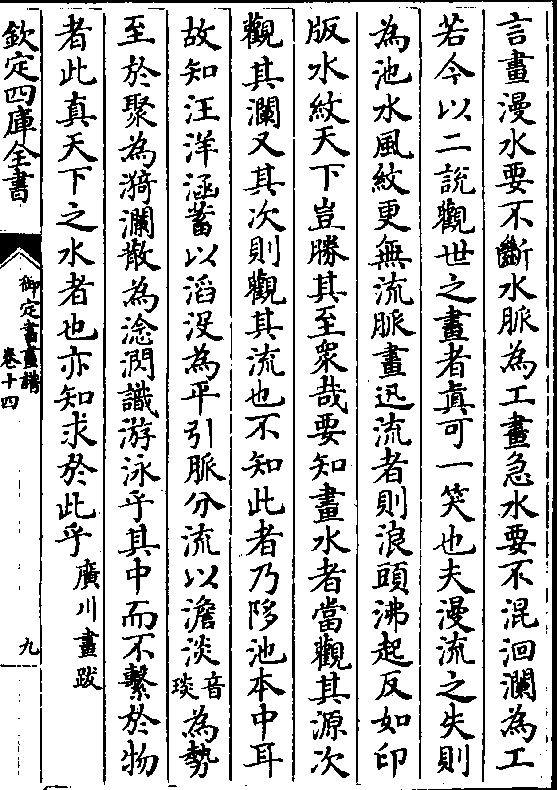 言畫漫水要不斷水脈為工畫急水要不混洄瀾為工
若今以二說觀世之畫者真可一笑也夫漫流之失則
為池水風紋更無流脈畫迅流者則浪頭沸起反如印
版水紋天下豈勝其至衆哉要知畫水者當觀其源次
觀其瀾又其次則觀其流也不知此者乃陊池本中耳
故知汪洋涵蓄以滔没為平引脈分流以澹淡音琰為勢
至於聚為漪瀾散為淰潤識游泳乎其中而不繫於物
者此真天下之水者也亦知求於此乎廣川畫跋
欽定四庫全書
御定書畫譜
卷十四
九